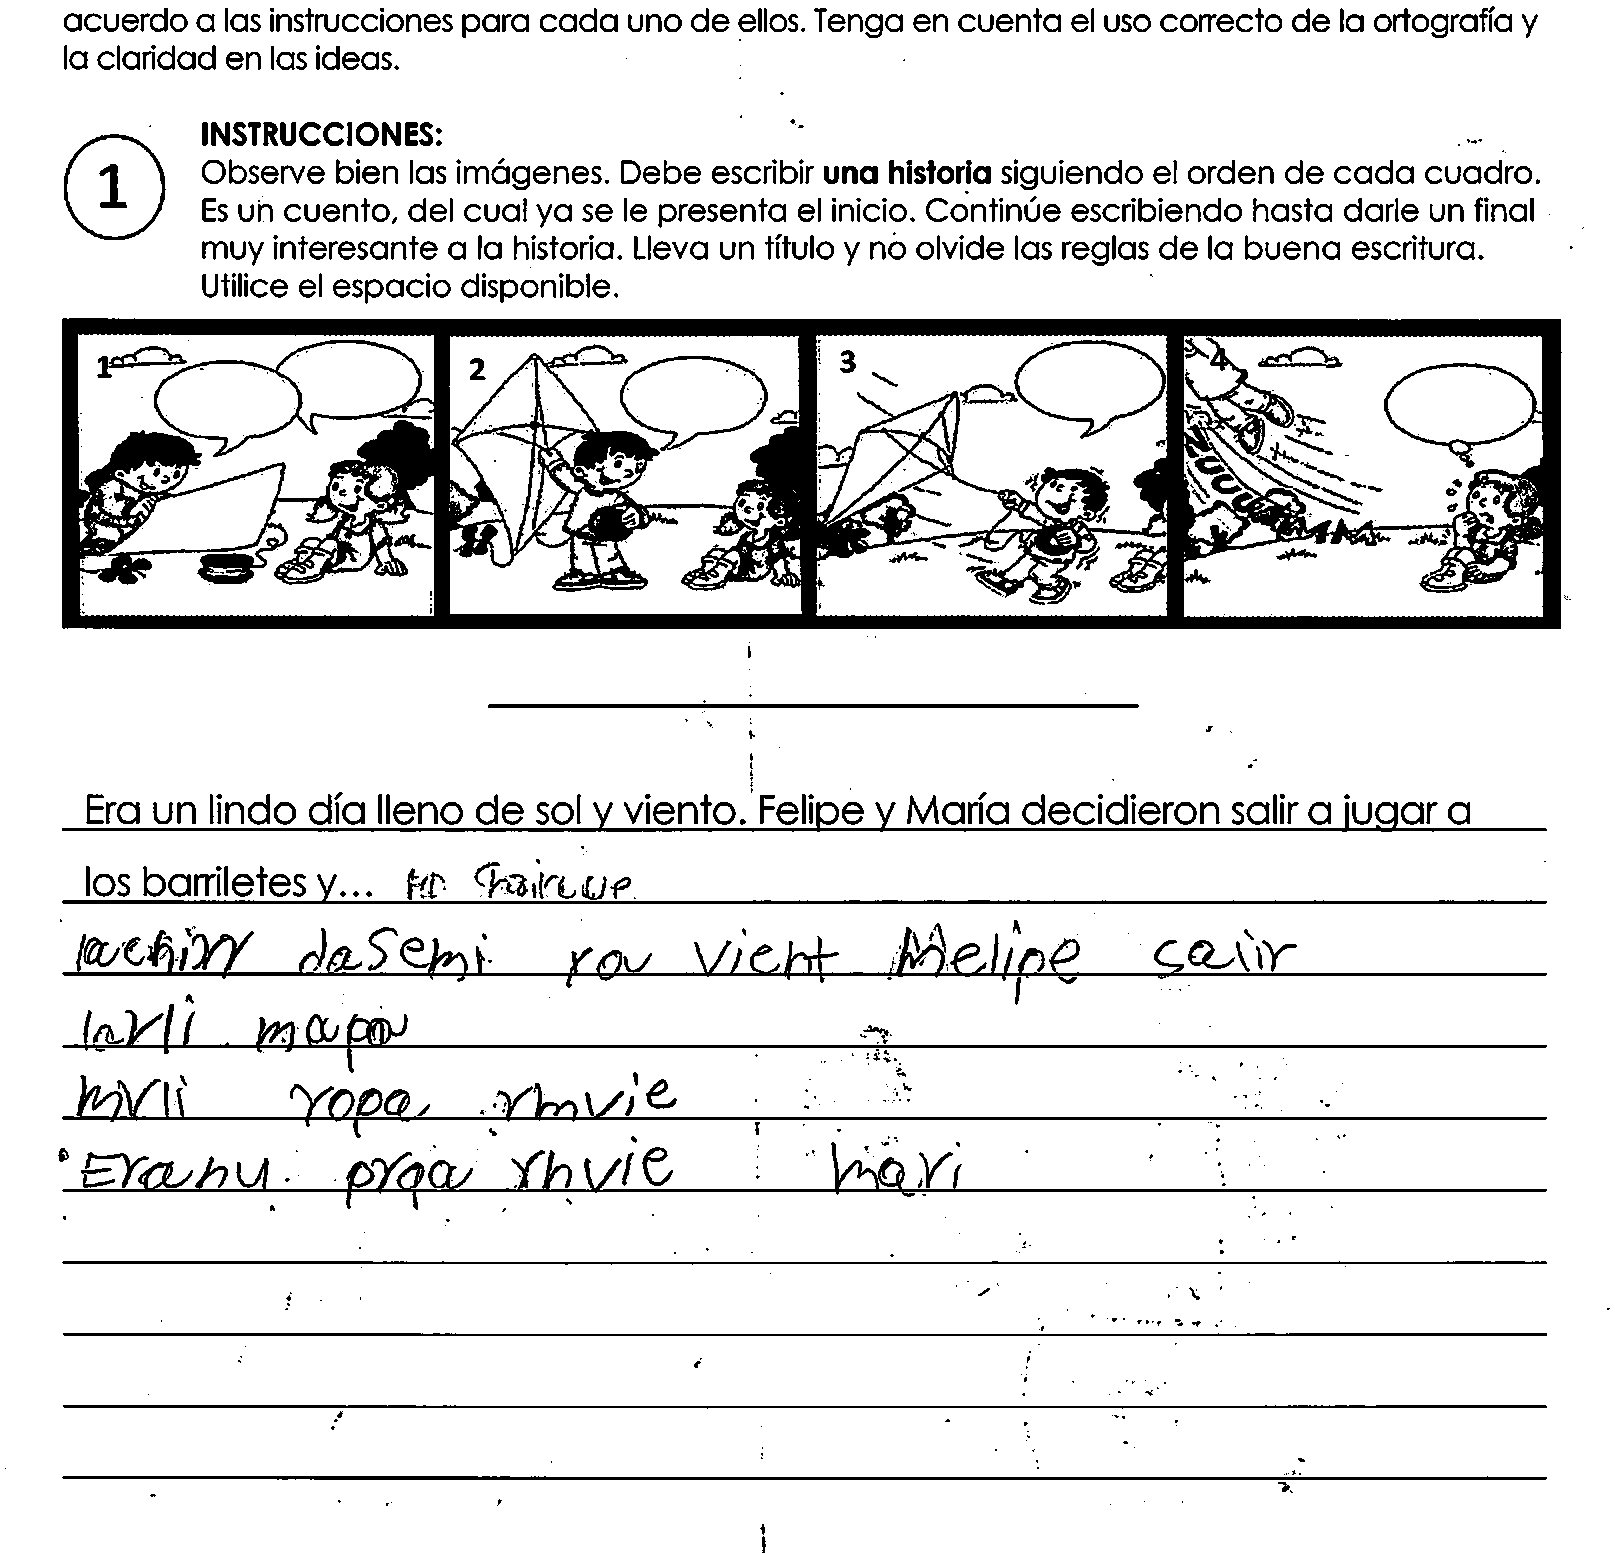 acuerdo a las instrucciones para cada uno de ellos. Tenga en cuenta el uso correcto de la ortografía y
la claridad en las ideas.
1
INSTRUCCIONES:
Observe bien las imágenes. Debe escribir una historia siguiendo el orden de cada cuadro.
Es un cuento, del cual ya se le presenta el inicio. Continúe escribiendo hasta darle un final
muy interesante a la historia. Lleva un título y no olvide las reglas de la buena escritura.
Utilice el espacio disponible.
1 2 3 4
Era un lindo día lleno de sol y viento. Felipe y María decidieron salir a jugar a
los barriletes y...
daSemi rou vieht Melipe salir
mapa
mvli ropa rmvie
Eranu. prqa rhvie mari